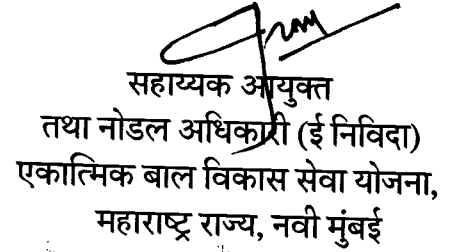 सहाय्यक आयुक्त
तथा नोडल अधिकारी (ई निविदा)
एकात्मिक बाल विकास सेवा योजना,
महाराष्ट्र राज्य, नवी मुंबई